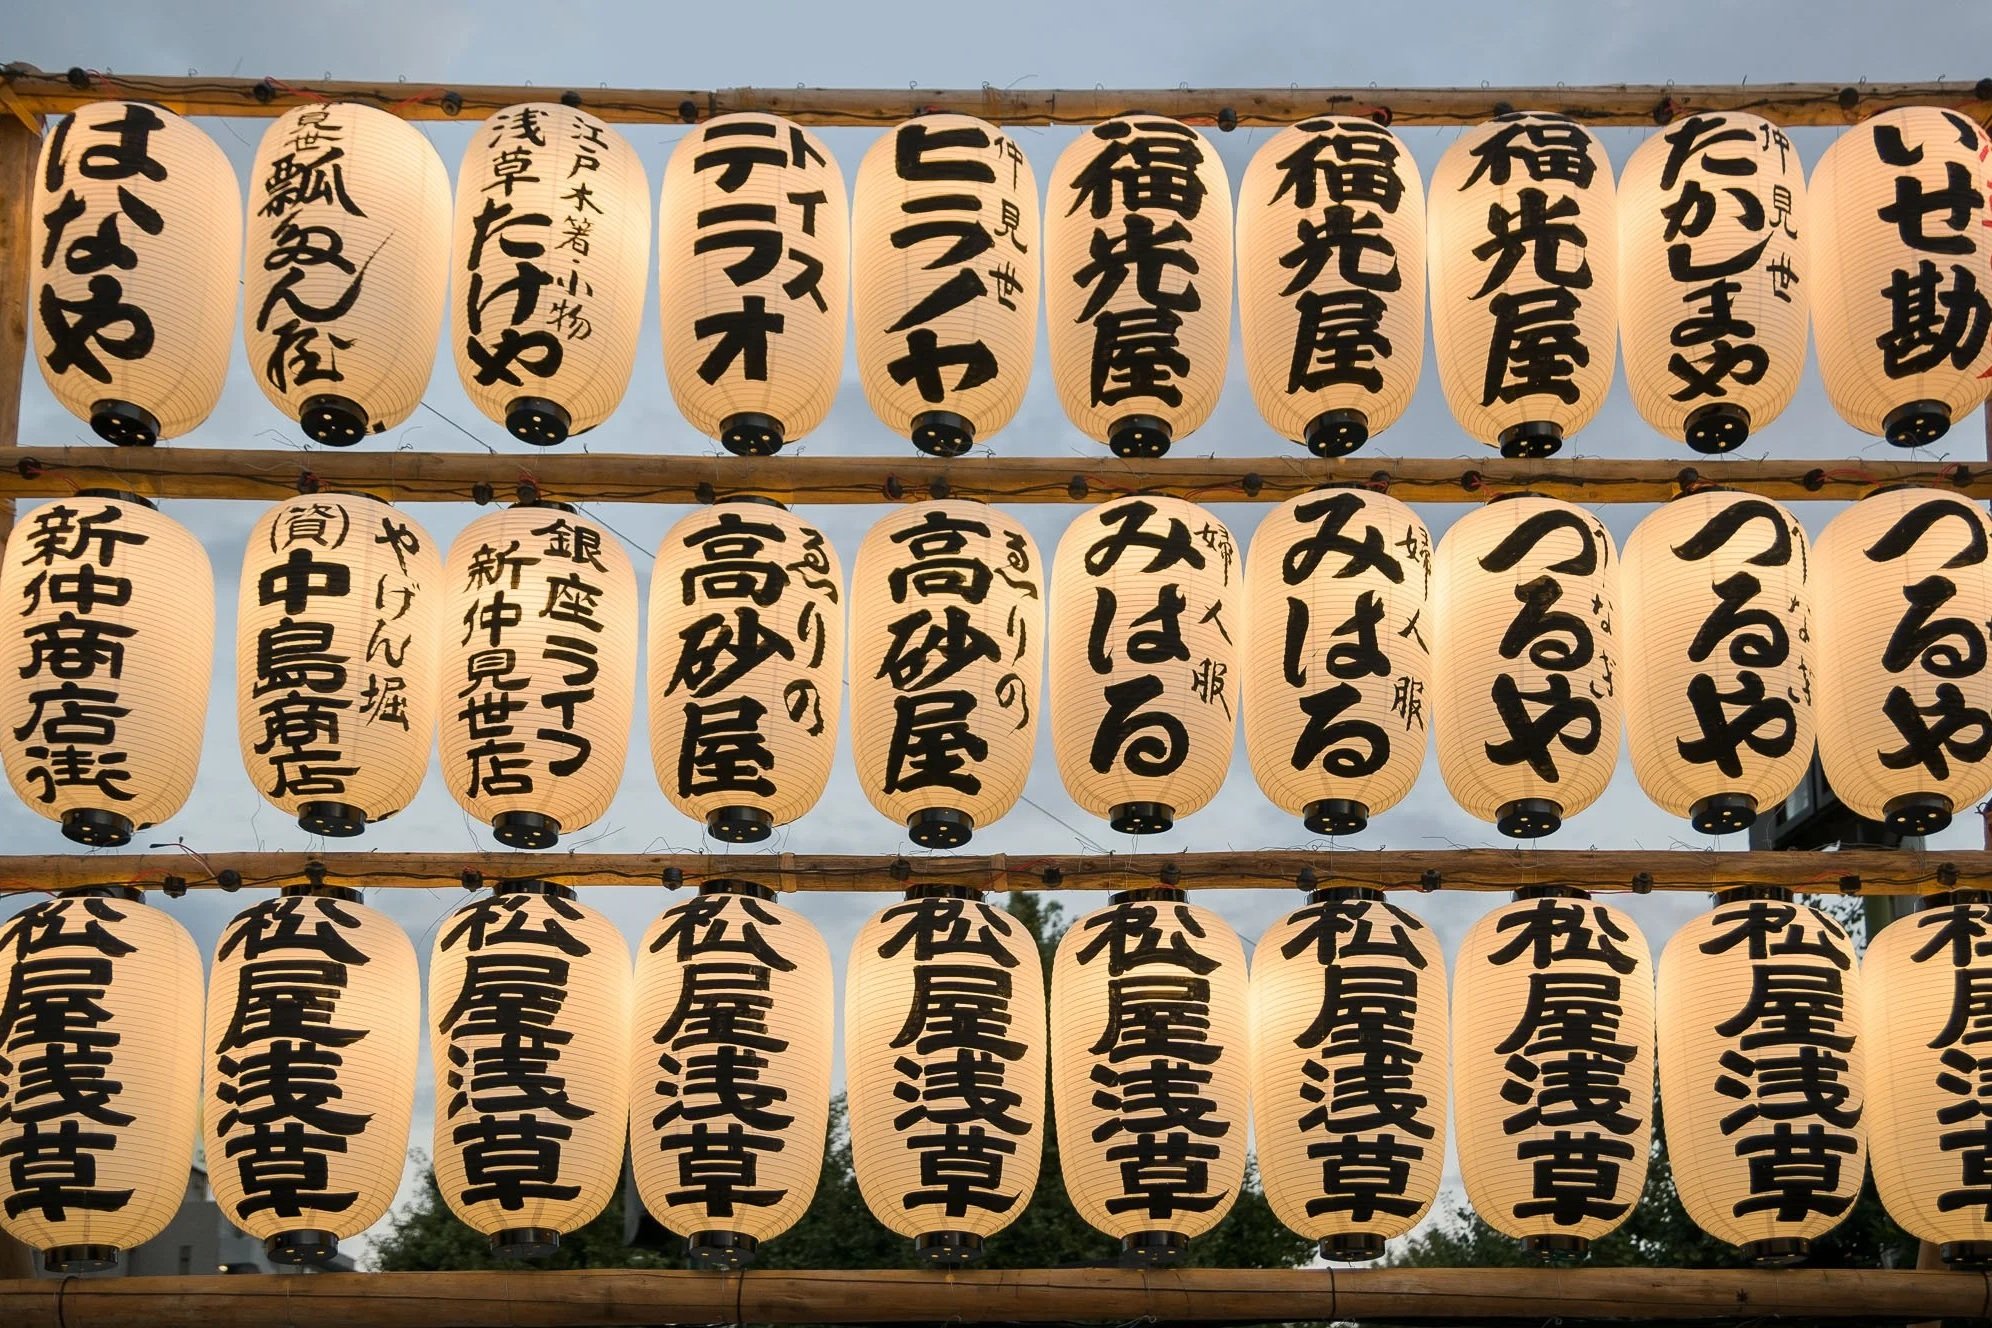 はなや
見世
瓢たん屋
江戸木箸・小物
浅草たけや
トイス
テラオ
仲見世
ヒラノヤ
福光屋
福光屋
福光屋
仲見世
たかしまや
いせ勘
新仲商店街
やげん堀
(資)中島商店
銀座ライフ
新仲見世店
ゑりの
高砂屋
ゑりの
高砂屋
婦人服
みはる
婦人服
みはる
うなぎ
つるや
うなぎ
つるや
つるや
松屋浅草
松屋浅草
松屋浅草
松屋浅草
松屋浅草
松屋浅草
松屋浅草
松屋浅草
松屋浅草
松屋浅草